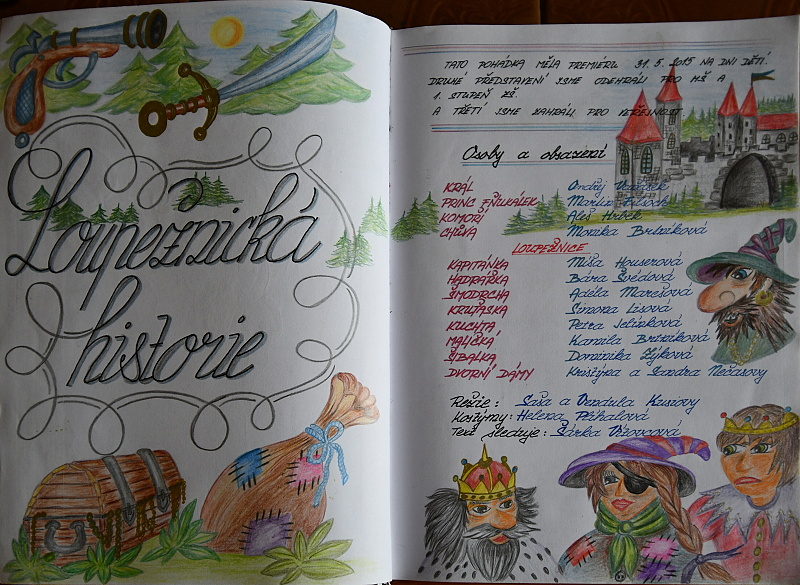 Loupežnická
historie
TATO POHÁDKA MĚLA PREMIERU 31. 5. 2015 NA DNI DĚTÍ.
DRUHÉ PŘEDSTAVENÍ JSME ODEHRÁLI PRO MŠ A
1. STUPEŇ ZŠ
A TŘETÍ JSME ZAHRÁLI PRO VEŘEJNOST
Osoby a obsazení
KRÁL Ondřej
PRINC Martin
KOMOŘÍ Aleš Hrbek
CHŮVA Monika Brtníková
LOUPEŽNICE
KAPITÁNKA Míša Houserová
HADRAŘKA Bára Švédová
ŠMODRCHA Adéla Marešová
KRUŤASKA Simona Lisová
KUCHTA Petra Jelínková
MALIČKÁ Kamila Brtníková
ŠIBALKA Dominika Zýková
DVORNÍ DÁMY Kristýna a Sandra Nečasovy
Režie: Saša a Vendula
Kostýmy: Helena Příhalová
Text sleduje: Šárka